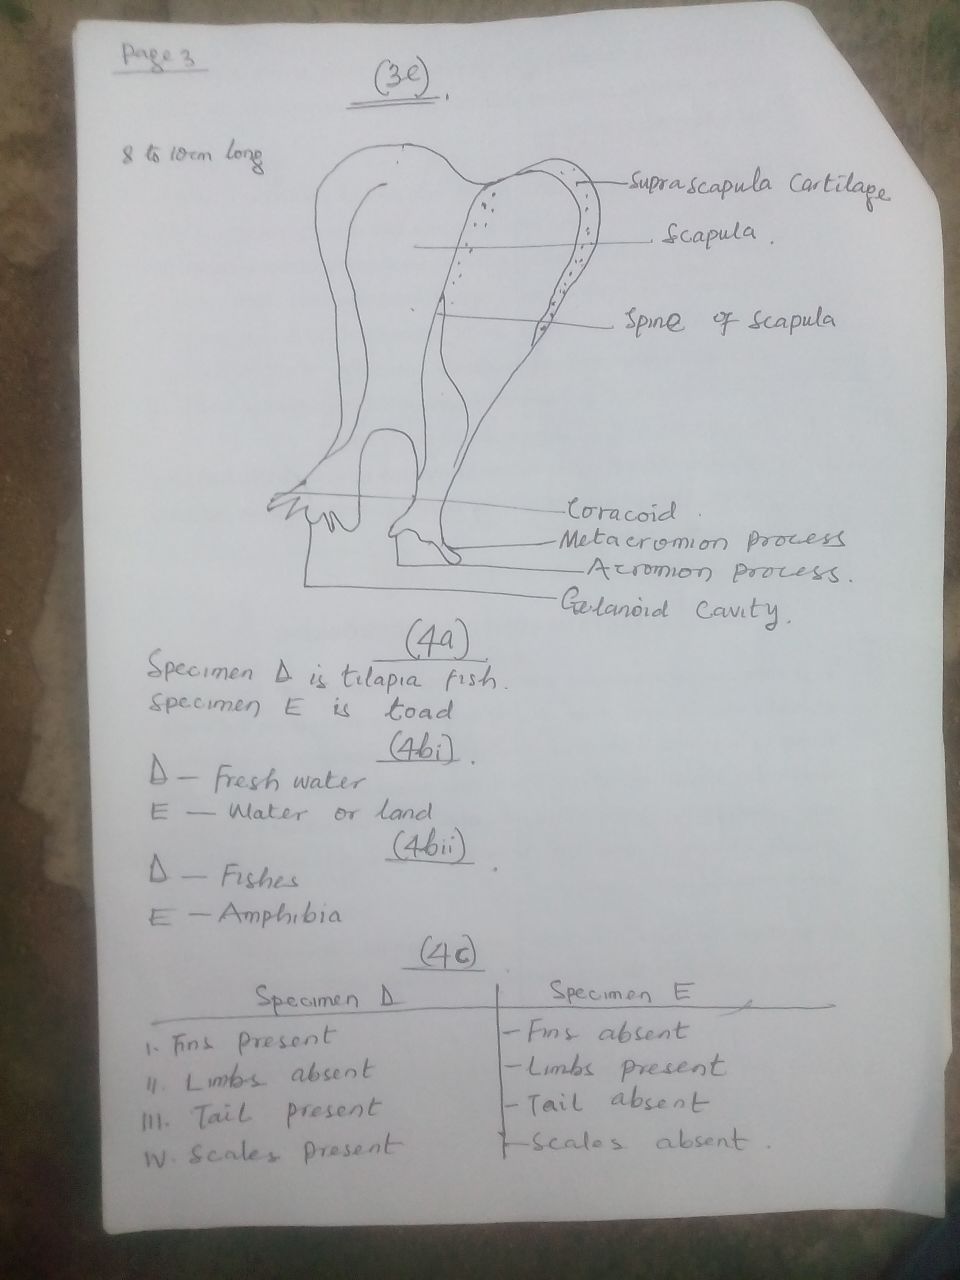 Page 3
(3e).
8 to 10cm long
Suprascapula Cartilage
Scapula.
Spine of Scapula
Coracoid
Metacromion process
Acromion process.
Gelanoid cavity.
(4a)
Specimen D is tilapia fish.
Specimen E is toad
(4bi).
D - Fresh water
E - Water or land
(4bii).
D - Fishes
E - Amphibia
(4c)
Specimen D Specimen E
I. Fins present - Fins absent
II. Limbs absent - Limbs present
III. Tail present - Tail absent
IV. Scales present - Scales absent.